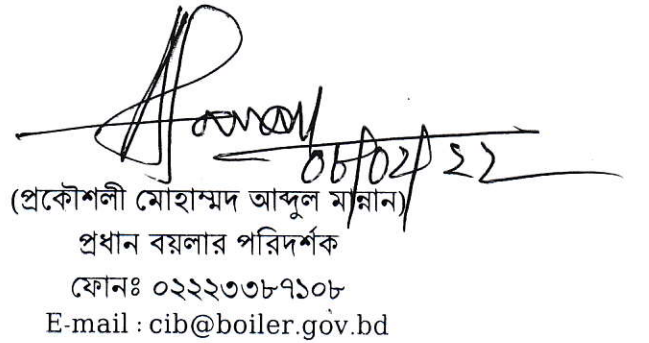 ০৮/০২/২২
(প্রকৌশলী মোহাম্মদ আব্দুল মান্নান)
প্রধান বয়লার পরিদর্শক
ফোনঃ ০২২২৩৩৮৭১০৮
E-mail : cib@boiler.gov.bd